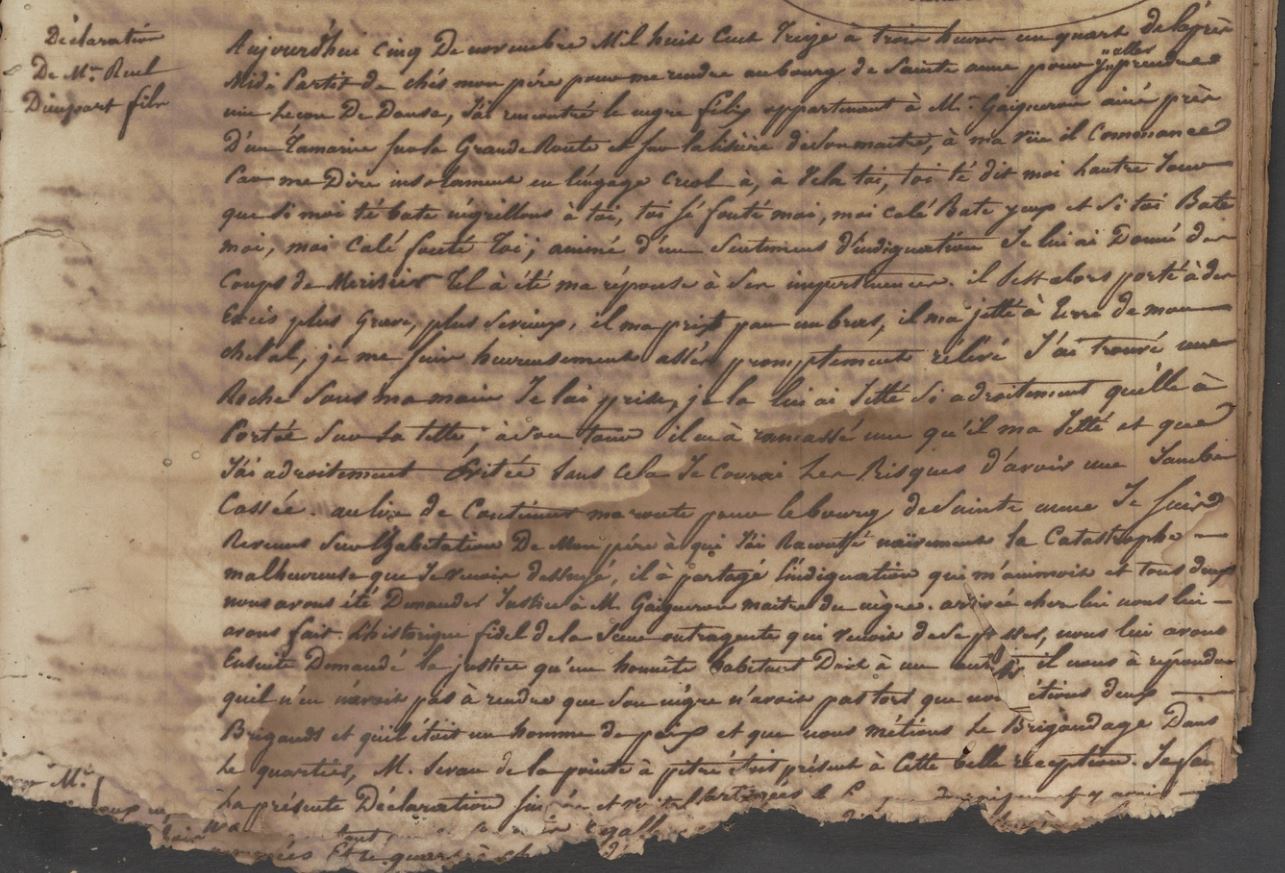 Déclaration
De Mr. Ruel
Dimpart fils
Aujourd'hui cinq De novembre Mil huit Cent Treize à trois heures un quart de l'après
Midi Partit de chés mon pére pour me rendre au bourg de Sainte anne pour y aller prendre
une Leçon De Danse, J'ai rencontré le nègre félix appartenant à Mr. Gaigneron ainé près
D'un Tamarin sur la Grande Route et sur la lisière de Son maitre, à ma vüe il Commance
Par me Dire insolament en l'engage Creol à, à Vela toi, toi té dit moi hautre Jour
que Si moi té bate négrillons à toi, toi sé fouté moi, moi calé Bate yeux et Si toi Bate
moi, moi Calé fouté Toi; animé d'un Sentiment d'indignation Je lui ai Donné des
Coups de Merisier Tel à été ma réponse à Ses impertinences. il s'est alors porté à des
Excès plus Grave, plus Serieux, il ma prix par un bras, il ma jetté à Terre de mon
cheval, je me suis heureusement assés promptement rélevé J'ai trouvé une
Roche Sous ma main Je l'ai prise, je la lui ai Jetté Si adroitement quelle à
Portée Sur la tette; à Son tour il en à ramassé une qu'il ma Jetté et que
J'ai adroitement Evitée Sans Cela Je Courai Les Risques d'avoir une Jambe
Cassée. au lieu de Continuer ma route pour le bourg de Sainte anne Je suis
Revenus Sur l'habitation De Mon pére à qui J'ai Raconté naïvement la Catastrophe
malheureuse que Je venois d'essuyé, il à partagé l'indignation qui m'animoit et tous deux
nous avons été Demander Justice à M. Gaigneron maitre du nègre. arrivée chez lui nous lui
avons fait L'historique fidel de la Scene outragente qui venoit de Se passer, nous lui avons
Ensuite Demandé la justice qu'un honnête habitant Doit à un autre il nous à répondu
quil n'en n'avoit pas à rendre que Son nègre n'avoit pas tort que nous étions deux
Brigands et qu'il étoit un homme de paix et que nous métions Le Brigandage Dans
Le quartier, M. Sevan de la pointe à pitre étoit présent à Cette belle réception. Je fai
La présente Déclaration et
Mr.